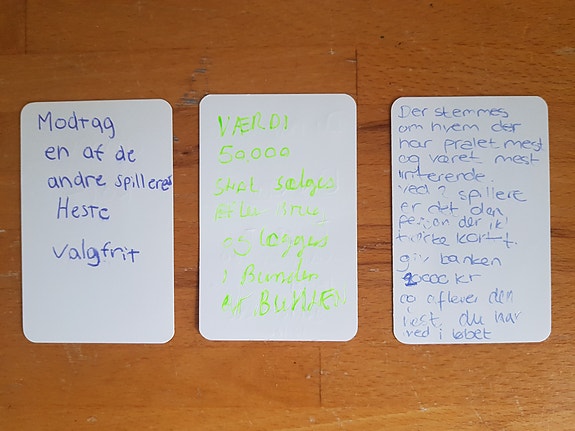 Modtag
en af de
andre spilleres
Heste
valgfrit
VÆRDI
50.000
Skal sælges
efter brug
og lægges
i Bunden
af BUNKEN
Der stemmes
om hvem der
har pralet mest
og været mest
irriterende.
ved 2 spillere
er det den
person der
trække kortt.
giv banken
kr
og aflever den
hest du har
ved i løbet